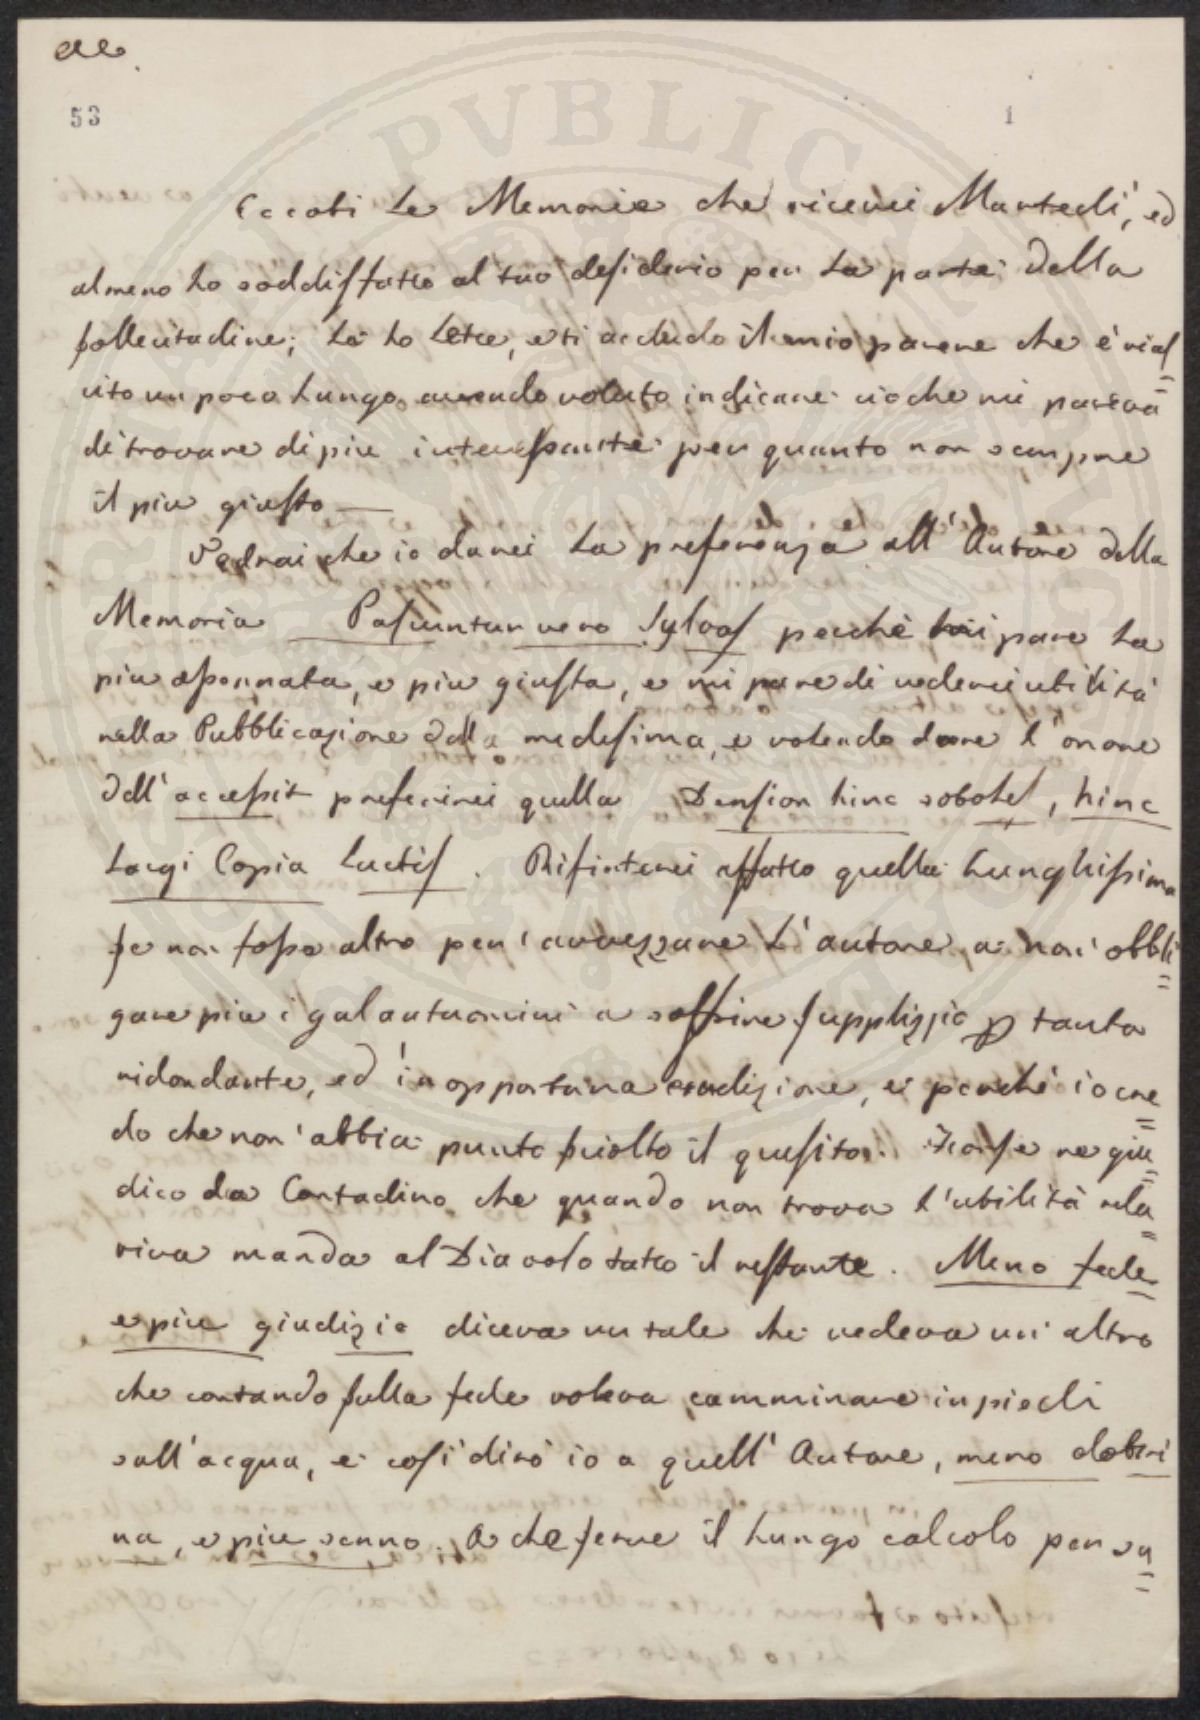 CC.
53
1
Eccoti Le Memorie che ricevei Martedì, ed
almeno ho soddisfatto al tuo desiderio per La parte della
sollecitudine; Le ho Lette, e ti accludo il mio parere che è ries=
cito un poco Lungo avendo voluto indicare ciò che mi pareva
di trovare di più interessante per quanto non sempre
il più giusto —
Vedrai che io darei La preferenza all'Autore della
Memoria Pascuntur vero Sylvas perché mi pare La
più assennata, e più giusta, e mi pare di vederci utilità
nella Pubblicazione della medesima, e volendo dare l'onore
dell'accessit preferirei quella Densior hinc soboles, hinc
Largi Copia Lactis. Rifiuterei affatto quella Lunghissima
se non fosse altro per avvezzare L'autore a non obbli=
gare più i galantuomini a soffrire supplizzio p tanta
ridondante, ed inopportuna erudizione, e perché io cre=
do che non abbia punto sciolto il quesito. Forse ne giu=
dico da Contadino che quando non trova l'utilità rela=
tiva manda al Diavolo tutto il restante. Meno fede
e più giudizio diceva un tale che vedeva un altro
che contando sulla fede voleva camminare in piedi
sull'acqua, e così dirò io a quell'Autore, meno dottri=
na, e più senno. A che serve il Lungo calcolo per su=